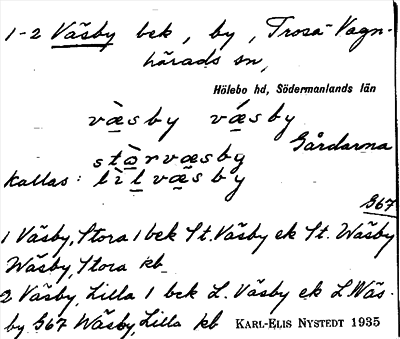 1-2 Väsby bek, by, Trosa-Vagn-
härads sn,
Hölebo hd, Södermanlands län
væ̀sby vǽsby
Gårdarna
stòrvæsby
kallas: lìlvæsby
G67
1 Väsby, Stora 1 bek St. Väsby ek St. Wäsby
Wäsby, Stora kb
2 Väsby, Lilla 1 bek L. Väsby ek L. Wäs-
by G67 Wäsby, Lilla kb KARL-ELIS NYSTEDT 1935